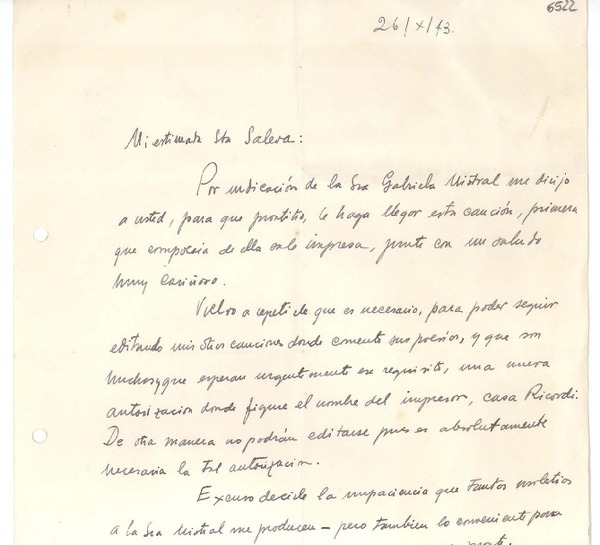 6522
26/X/43.
Mi estimada Sta Saleva:
Por indicación de la Sra Gabriela Mistral me dirijo
a usted, para que prontito, le haga llegar esta canción, primera
que con poesia de ella sale impresa, junto con un saludo
muy cariñoso.
Vuelvo a repetirle que es necesario, para poder seguir
editando mis otras canciones donde comento sus poesías, y que son
muchas y que esperan urgentemente ese requisito, una nueva
autorización donde figure el nombre del impresor, casa Ricordi.
De otra manera no podrán editarse pues es absolutamente
necesaria la tal autorización.
Excuso decirle la impaciencia que tantas molestias
a la Sra Mistral me producen — pero tambien lo conveniente para